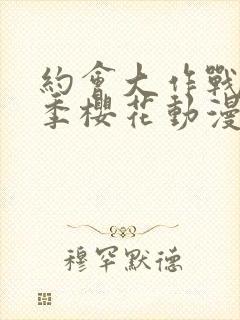 約會大作戰
季櫻花動漫
穆罕默德